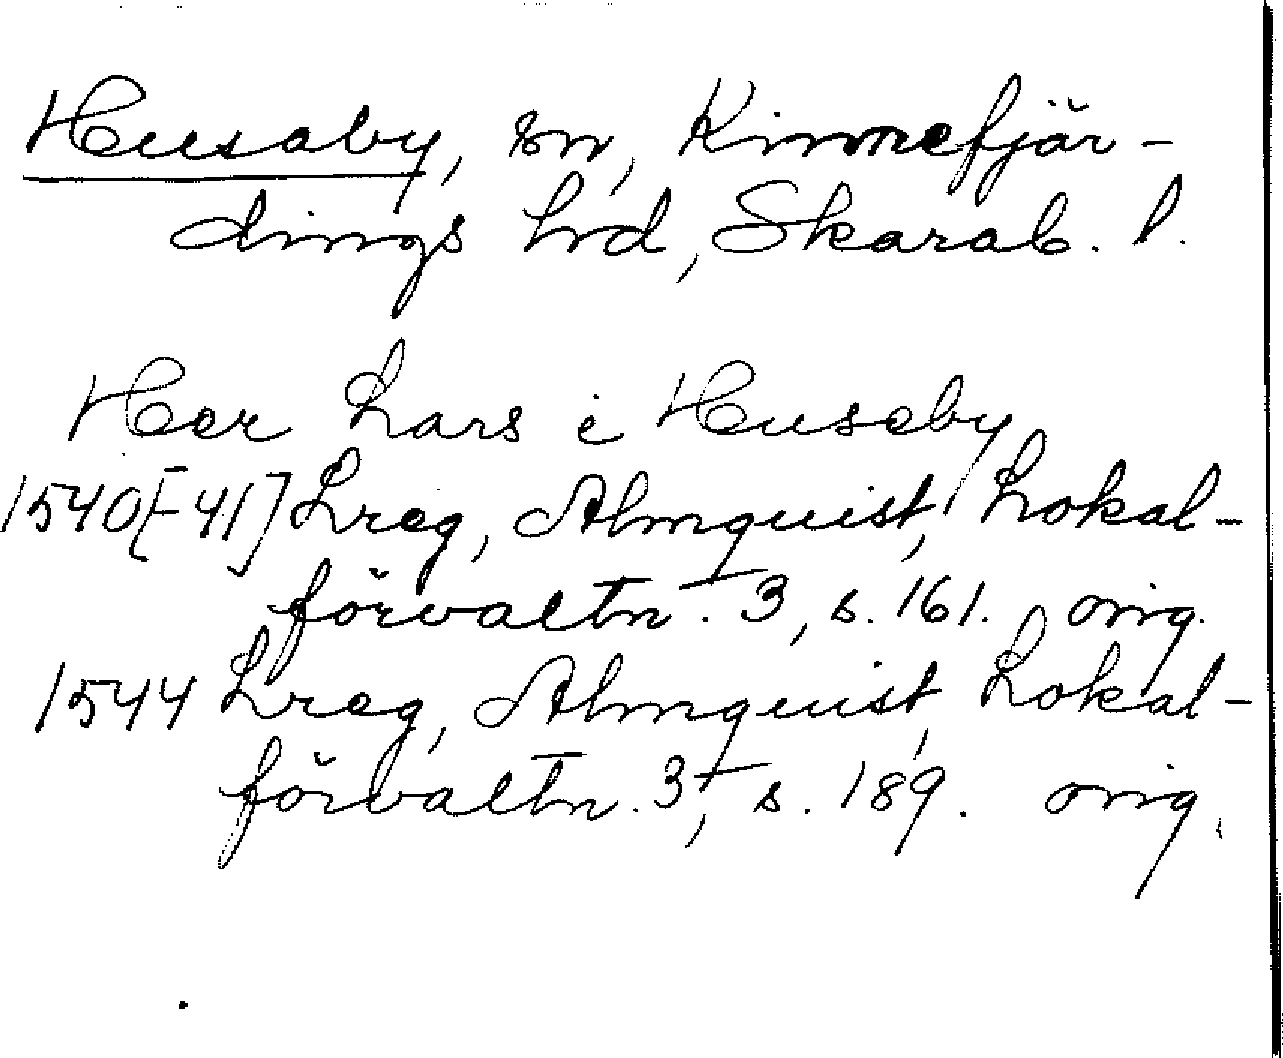 Husaby, sn, Kinnefjär-
dings hd, Skarab. l.
Her Lars i Huseby
1540[-41] Lreg, Almquist, Lokal-
förvaltn. 3, s. 161. orig.
1544 Lreg, Almquist, Lokal-
förvaltn. 3, s. 189. orig.